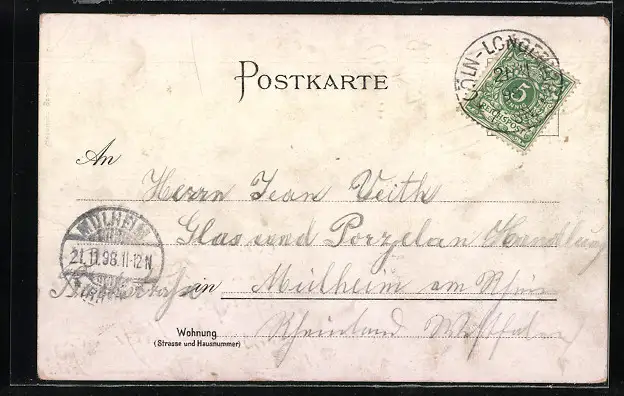 POSTKARTE
CÖLN-LONGERICH
5
PFENNIG
REICHSPOST
An
Herrn Jean Veith
Glas und Porzelan Handlung
MÜLHEIM
21.11.98.11-12 N.
in Mülheim am Rhein
Wohnung
(Strasse und Hausnummer)
Rheinland Westfalen